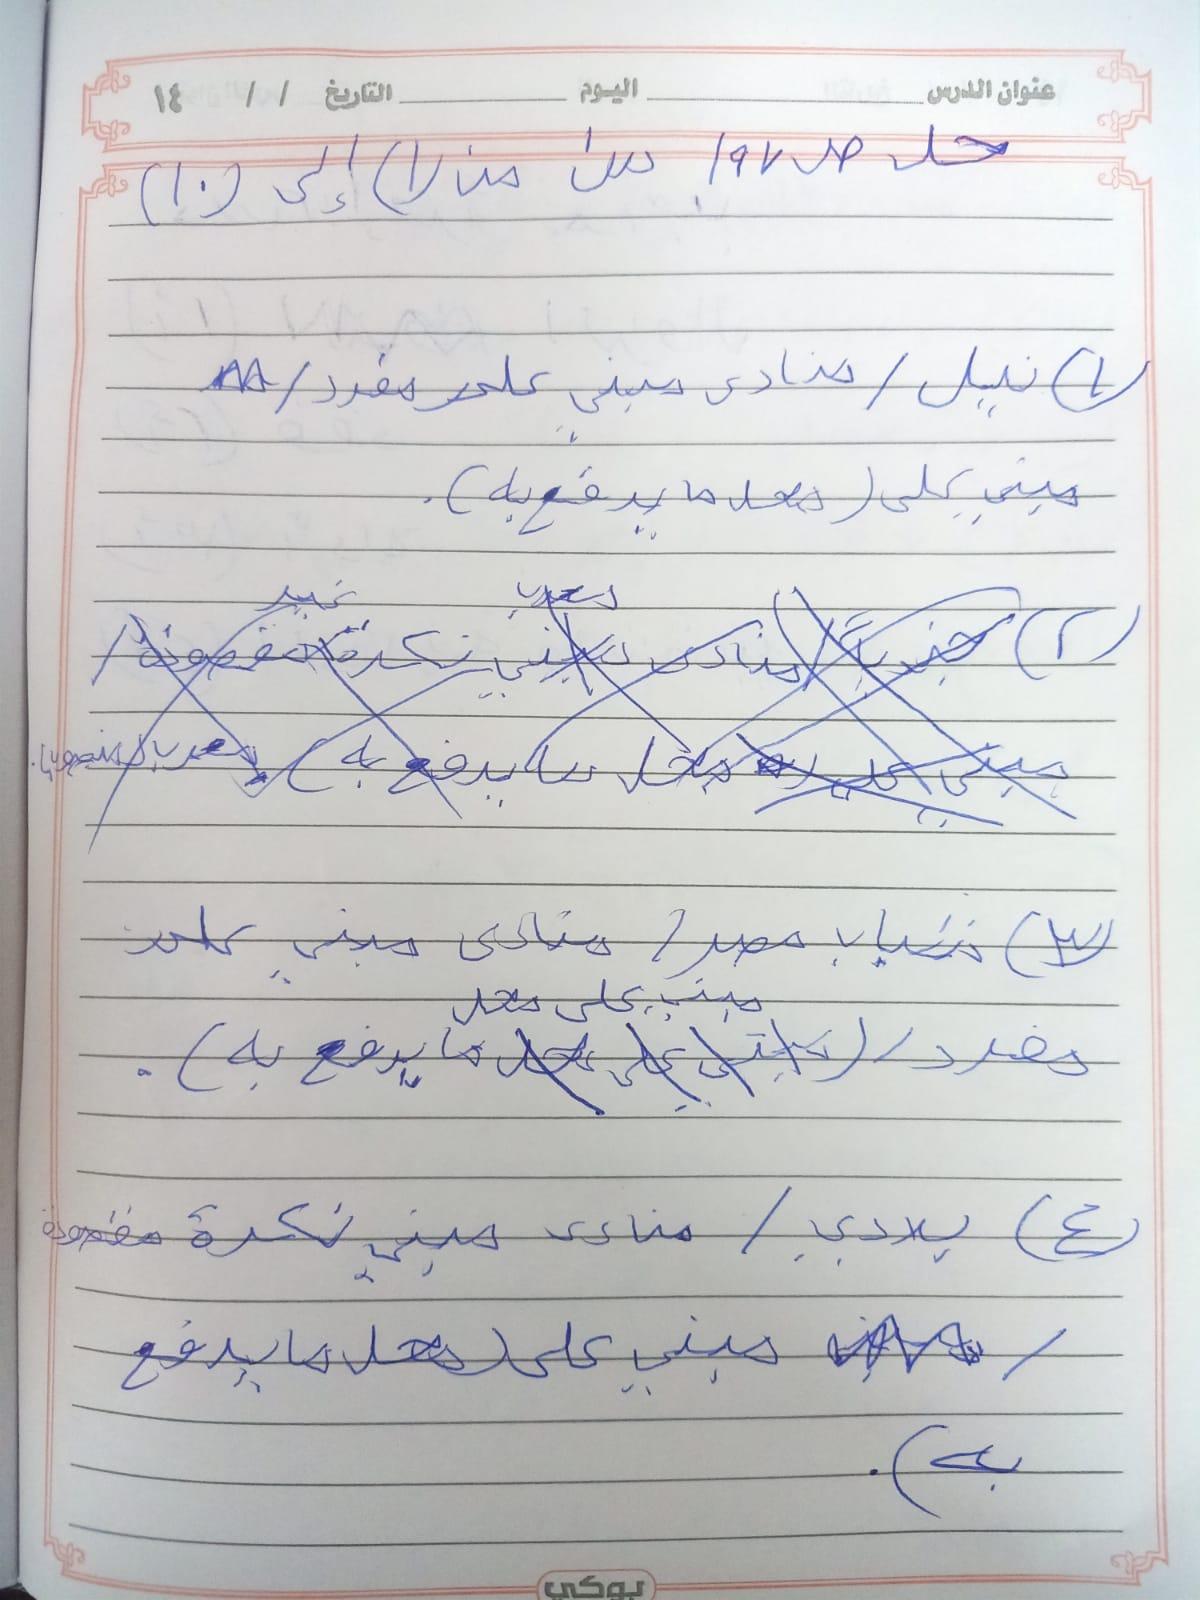 عنوان الدرس اليوم التاريخ / / ١٤
حل صـ ١٩٧ س من (١) إلى (١٠)
(١) نبيل / منادى مبني علم مفرد /
مبني على (محل ما يرفع به).
معرب غير
(٢) جندياً / منادى مبني نكرة مقصودة /
مبني على محل ما يرفع به) معرب (منصوب).
(٣) شباب مصر / منادى مبني علم
مبني على محل
مفرد / (مبني على محل ما يرفع به).
(٤) بلادي / منادى مبني نكرة مقصودة
/ مبني على (محل ما يرفع
به).
بوكي